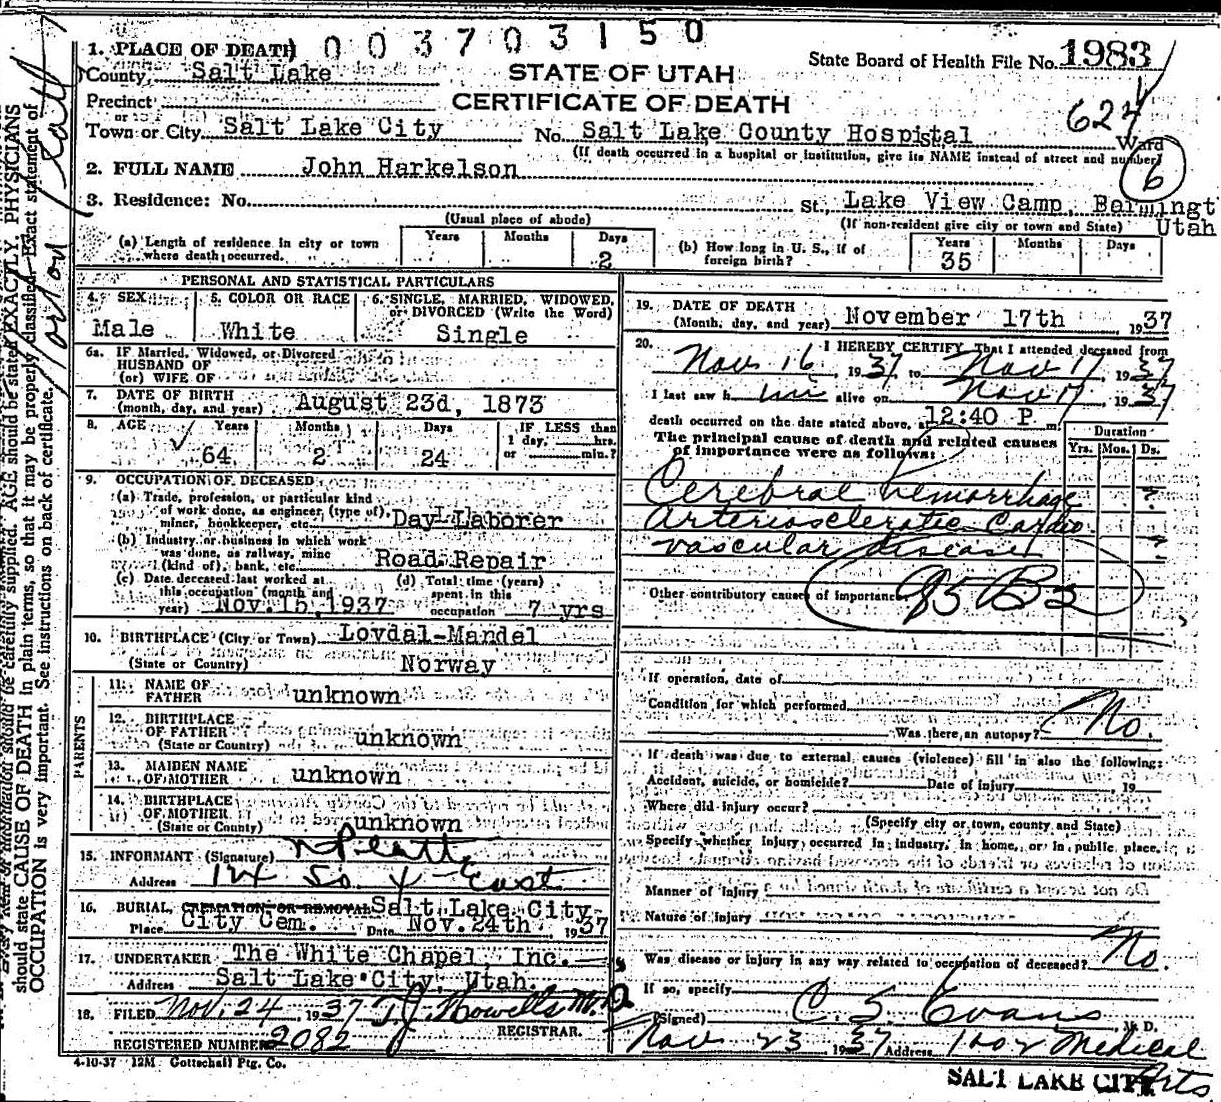 1. PLACE OF DEATH
0 0 3 7 0 3 1 5 0
State Board of Health File No. 1983
County, Salt Lake
STATE OF UTAH
Precinct
or
CERTIFICATE OF DEATH
624
Town or City Salt Lake City No. Salt Lake County Hospistal Ward
(If death occurred in a hospital or institution, give its NAME instead of street and number)
6
2. FULL NAME John Harkelson
3. Residence: No. St., Lake View Camp,
(Usual place of abode) (If non-resident give city or town and State) Utah
(a) Length of residence in city or town where death occurred. Years Months Days 2
(b) How long in U. S., if of foreign birth? Years 35 Months Days
PERSONAL AND STATISTICAL PARTICULARS
4. SEX Male
5. COLOR OR RACE White
6. SINGLE, MARRIED, WIDOWED, or DIVORCED (Write the Word) Single
6a. IF Married, Widowed, or Divorced
HUSBAND OF
(or) WIFE OF
7. DATE OF BIRTH
(month, day, and year) August 23d, 1873
8. AGE Years 64 Months 2 Days 24
IF LESS than
1 day, hrs.
or min.?
9. OCCUPATION OF DECEASED
(a) Trade, profession, or particular kind
of work done, as engineer, (type of),
miner, bookkeeper, etc. Day Laborer
(b) Industry or business in which work
was done, as railway, mine
(kind of), bank, etc. Road Repair
(c) Date deceased last worked at
this occupation (month and
year) Nov. 15, 1937
(d) Total time (years)
spent in this
occupation 7 yrs
10. BIRTHPLACE (City or Town) Lovdal-Mandel
(State or Country) Norway
PARENTS
11. NAME OF
FATHER unknown
12. BIRTHPLACE
OF FATHER
(State or Country) unknown
13. MAIDEN NAME
OF MOTHER unknown
14. BIRTHPLACE
OF MOTHER
(State or Country) unknown
15. INFORMANT (Signature)
Address 124 So 4 East
16. BURIAL, CREMATION OR REMOVAL Salt Lake City
Place City Cem. Date Nov. 24th, 1937
17. UNDERTAKER The White Chapel, Inc.
Address Salt Lake City, Utah.
18. FILED Nov. 24, 1937 T. J. Howells M.D
REGISTRAR.
REGISTERED NUMBER 2082
4-10-37 12M Gottschall Ptg. Co.
19. DATE OF DEATH
(Month, day, and year) November 17th 1937
20. I HEREBY CERTIFY That I attended deceased from
Nov 16, 1937, to Nov 17, 1937
I last saw him alive on Nov 17, 1937
death occurred on the date stated above, at 12:40 P m.
The principal cause of death and related causes
of importance were as follows:
Duration
Yrs. Mos. Ds.
Cerebral hemorrhage ?
Arteriosclerotic Cardio
vascular disease
Other contributory causes of importance
If operation, date of
Condition for which performed
Was there an autopsy? No.
If death was due to external causes (violence) fill in also the following:
Accident, suicide, or homicide? Date of injury, 19
Where did injury occur?
(Specify city or town, county and State)
Specify whether injury occurred in industry, in home, or in public place.
Manner of injury
Nature of injury
Was disease or injury in any way related to occupation of deceased? No.
If so, specify
(Signed) C. S. Evans M. D.
Nov 23 1937 Address 1002 Medical
Arts
SALT LAKE CITY
should state CAUSE OF DEATH in plain terms, so that it may be properly classified. Exact statement of
OCCUPATION is very important. See instructions on back of certificate.